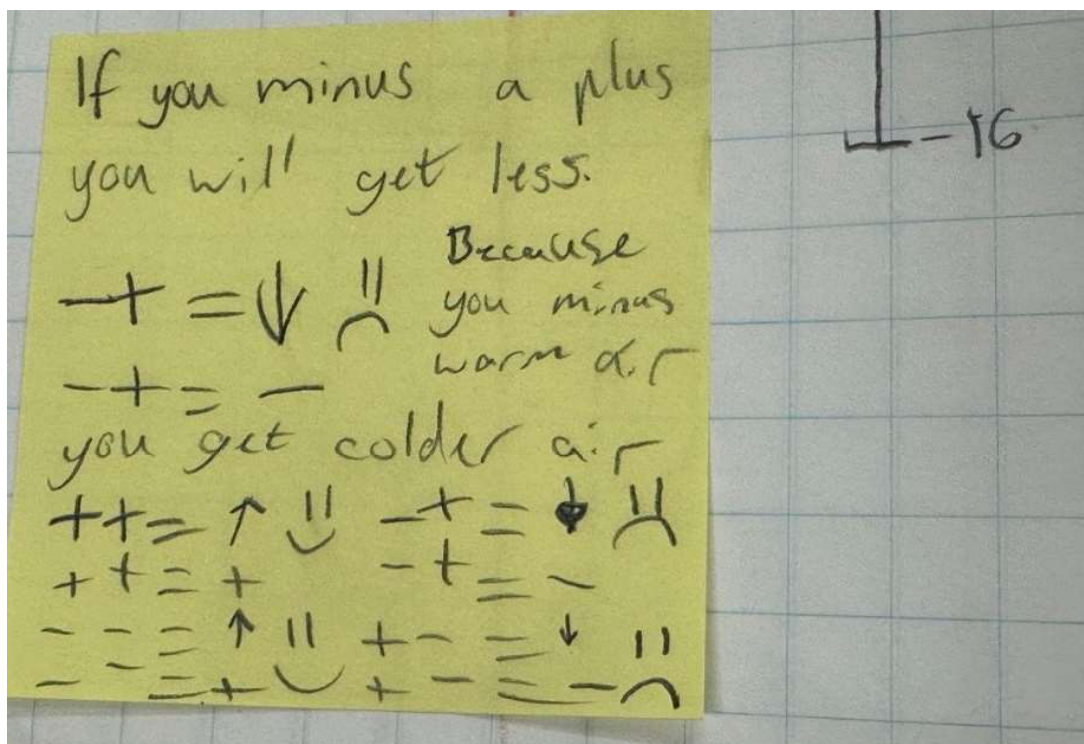 If you minus a plus
you will get less.
-+ = ↓ Because
you minus
-+ = - warm air
you get colder air
++ = ↑ -+ = ↓
++ = + -+ = -
-- = ↑ +- = ↓
-- = + +- = -
-16